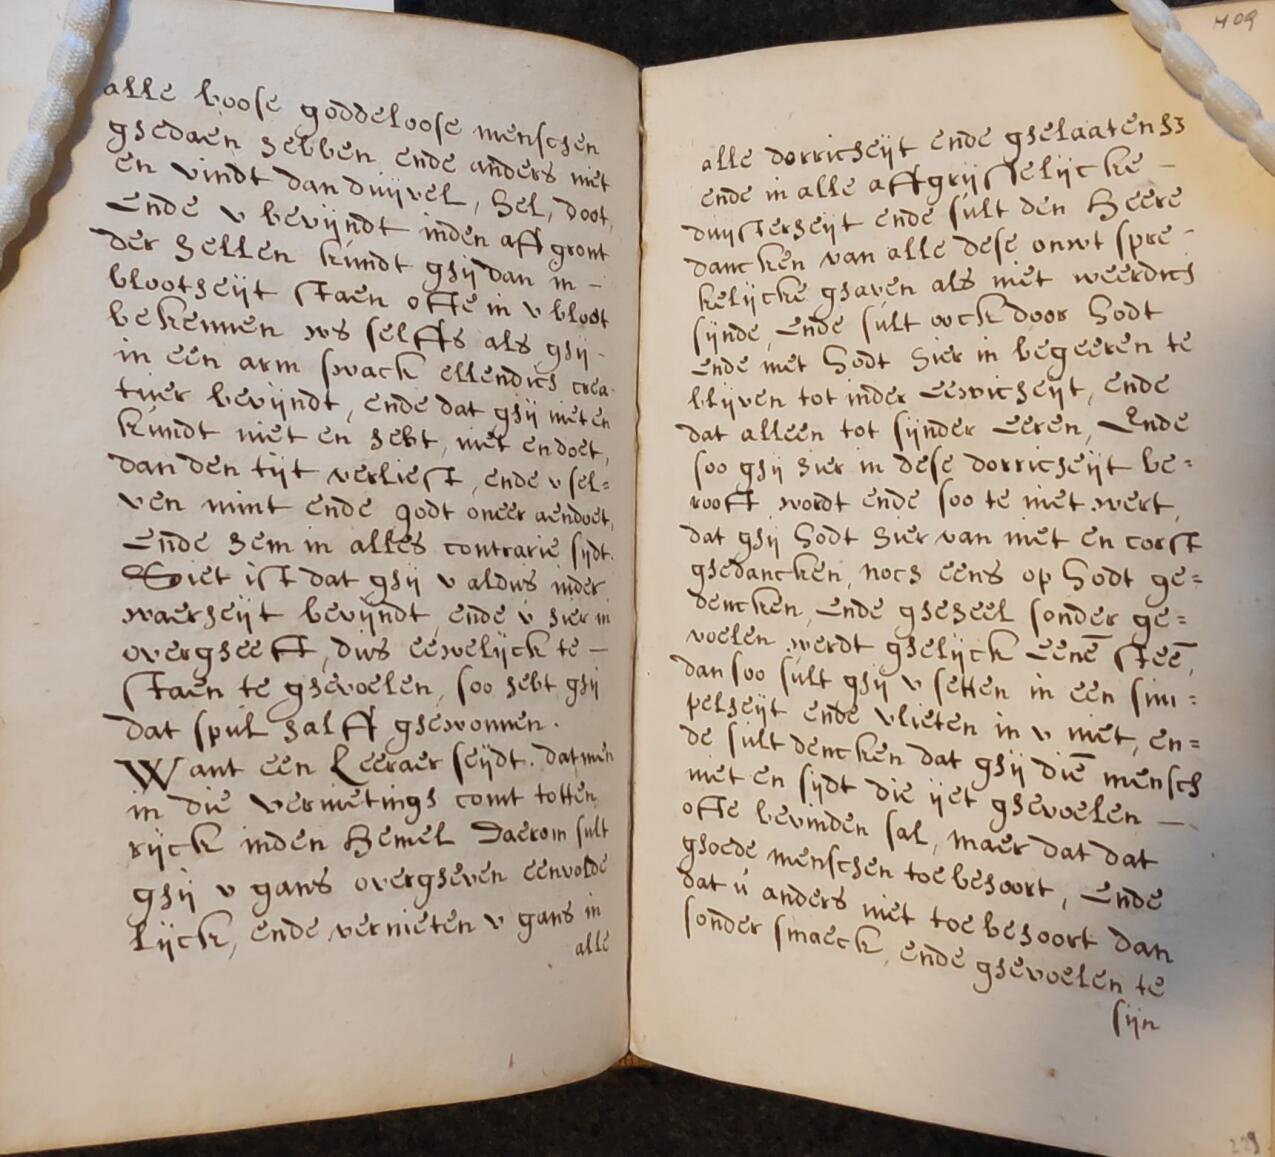 alle boose goddeloose menschen
ghedaen hebben ende anders niet
en vindt dan duijvel, hel, doot,
Ende v bevijndt inden affgront
der hellen kúndt ghij dan in -
blootheijt staen ofte in v bloot
bekennen ws selffs als ghij -
in een arm swack ellendich crea-
tuer bevijndt, ende dat ghij niet en
kúndt niet en hebt, niet en doet,
dan den tijt verliest, ende v sel=
ven mint ende godt oneer aendoet,
Ende hem in alles contrarie sijdt.
Siet ist dat ghij v aldus inder
waerheijt bevijndt, ende v hier in
overgheeft, dus eewelijck te -
staen te ghevoelen, soo hebt ghij
dat spul halff ghewonnen.
Want een Leeraer seijdt. datmen
in die vernietingh comt totten
rijck inden Hemel Daerom sult
ghij v gans overgheven eenvolde
lijck, ende vernieten v gans in
alle
409
alle dorricheijt ende ghelaatenh3
ende in alle affgrijselijcke -
duijsterheijt ende súlt den Heere
dancken van alle dese onwt spre-
kelijcke ghaven als niet weerdich
sijnde, Ende súlt oock door Godt
Ende met Godt hier in begeeren te
blijven tot inder Eewicheijt, ende
dat alleen tot sijnder Eeren, Ende
soo ghij hier in dese dorricheijt be=
rooft wordt ende soo te niet wert,
dat ghij Godt hier van niet en corst
ghedancken, noch eens op Godt ge=
dencken, Ende gheheel sonder ge=
voelen werdt ghelijck Eenē steē,
dan soo súlt ghij v setten in een sim=
pelheijt ende vlieten in v niet, en=
de súlt dencken dat ghij diē mensch
niet en sijdt die ijet ghevoelen —
ofte bevinden sal, maer dat dat
ghoede menschen toebehoort, Ende
dat ú anders niet toebehoort dan
sonder smaeck, ende ghevoelen te
sijn
229